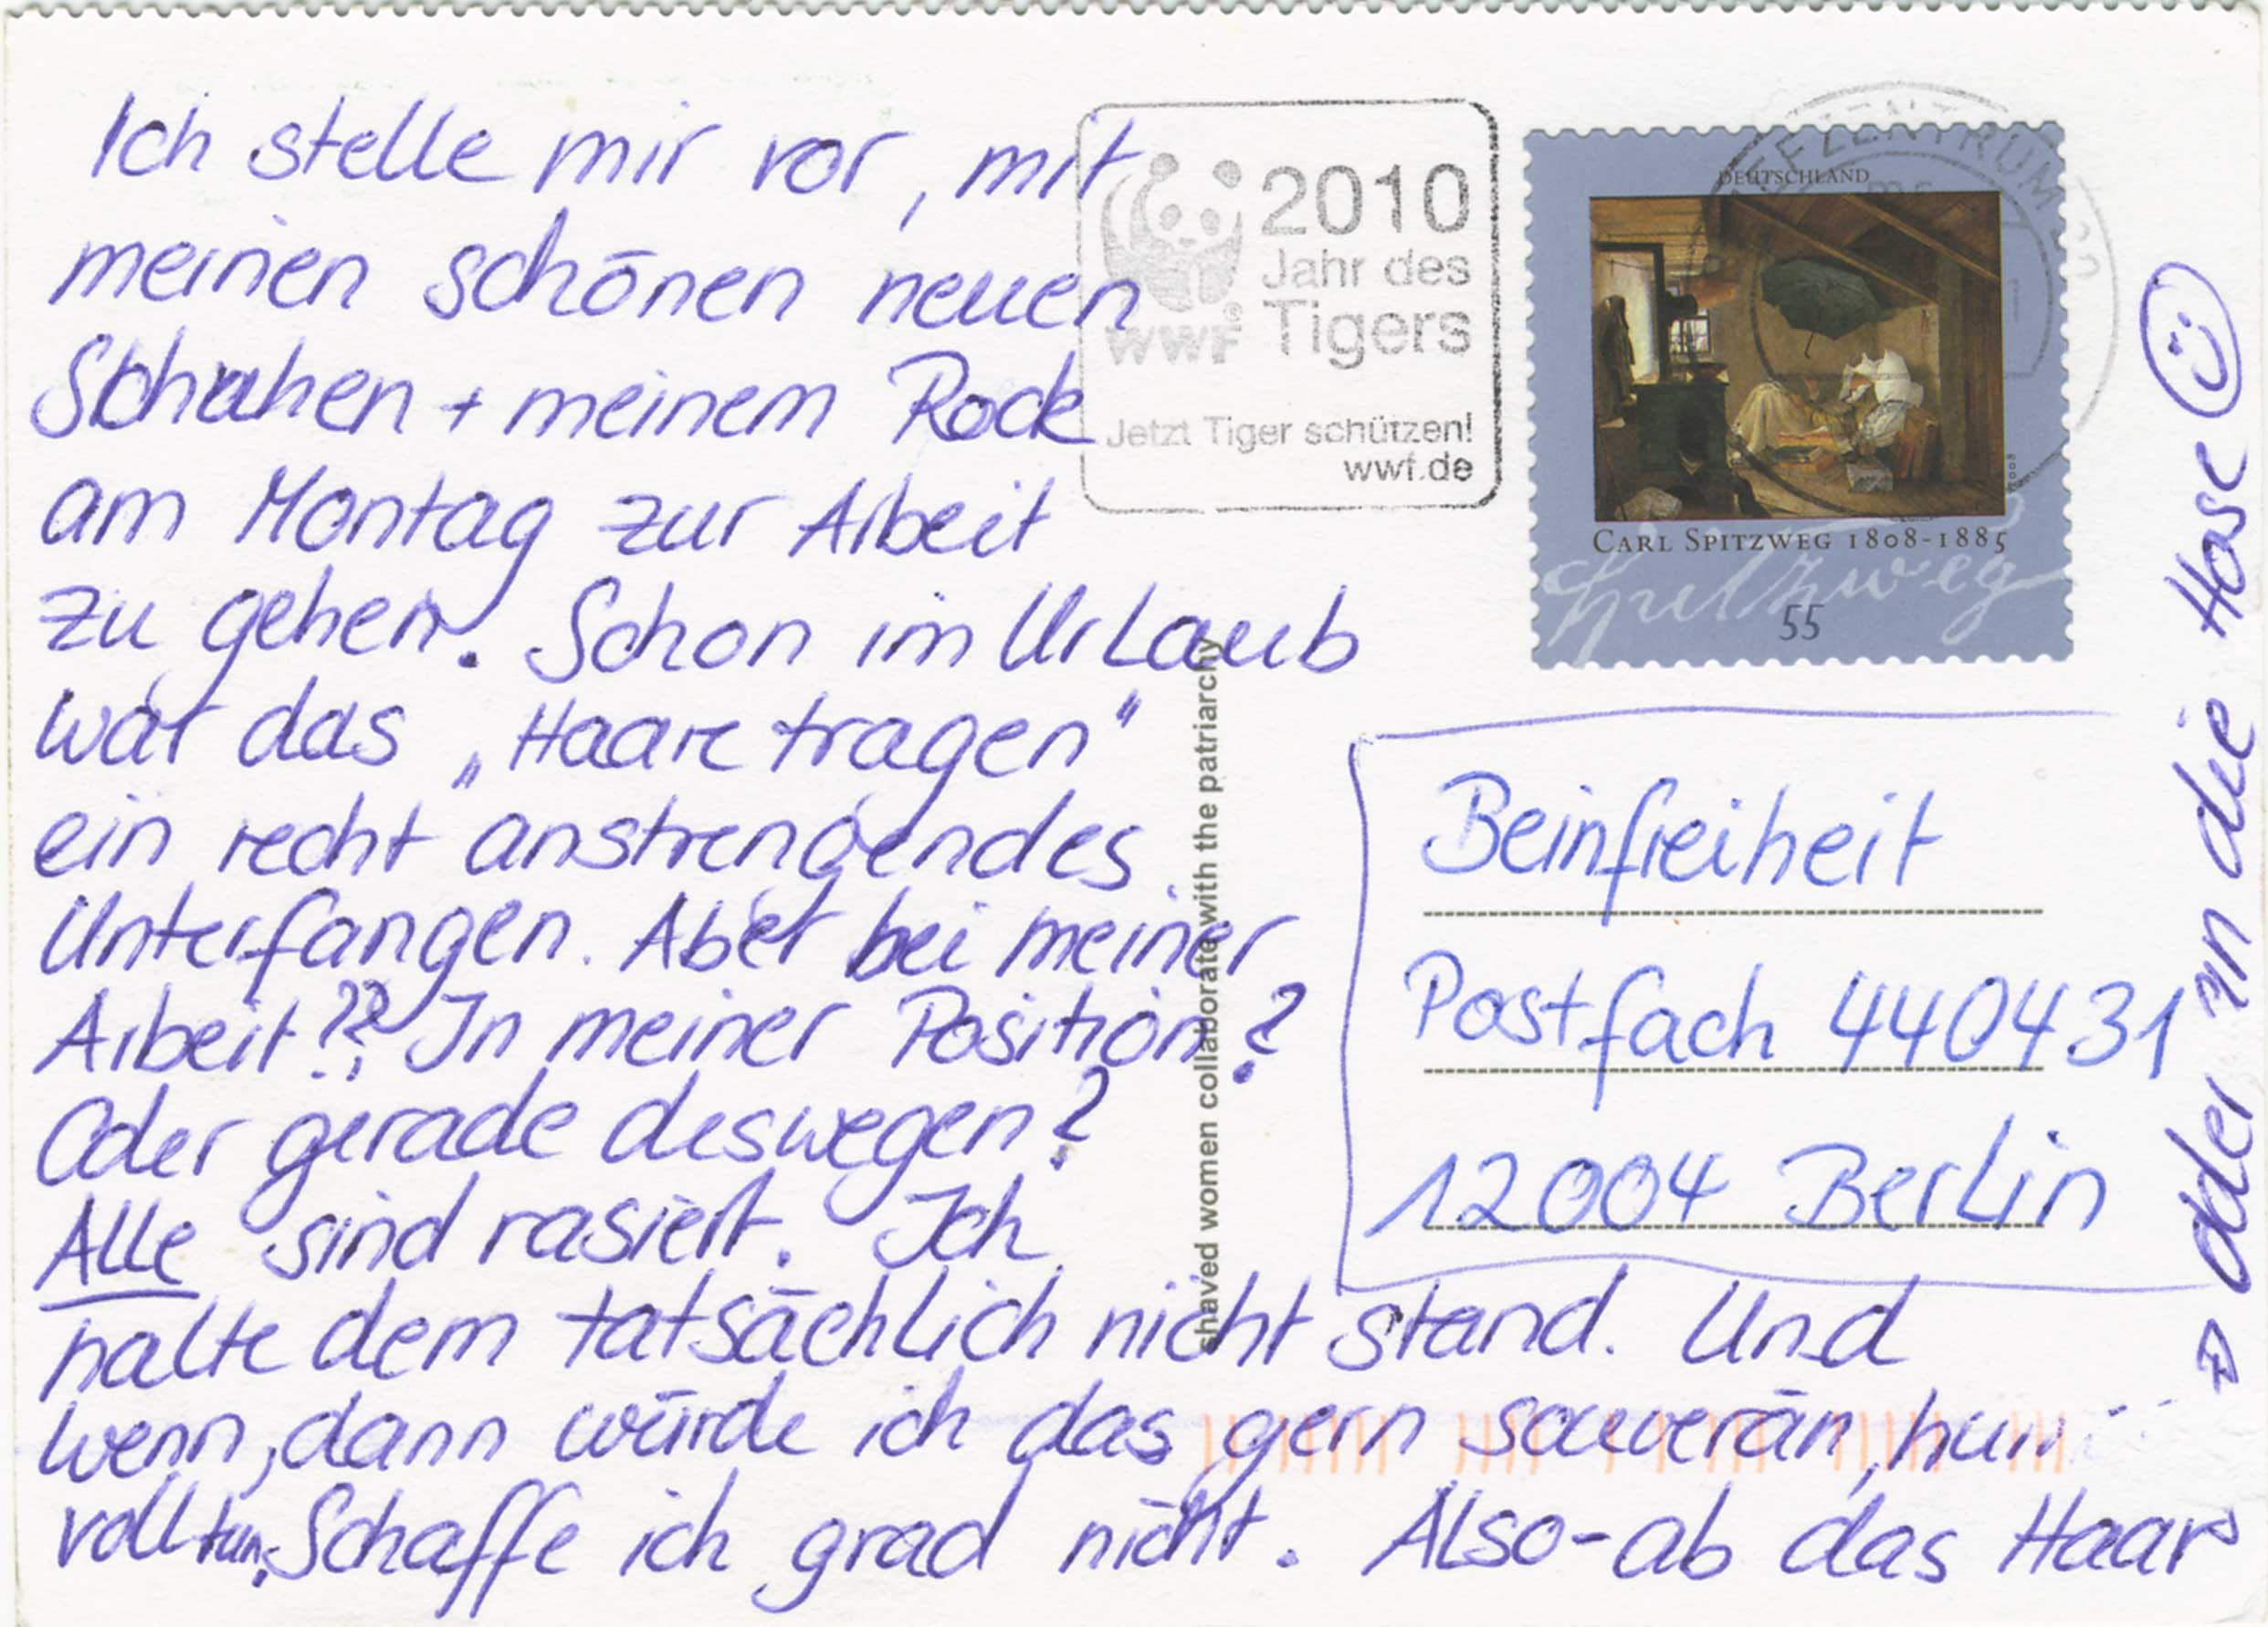 Ich stelle mir vor, mit
meinen schönen neuen
Schuhen + meinem Rock
am Montag zur Arbeit
zu gehen. Schon im Urlaub
war das „Haare tragen"
ein recht anstrengendes
Unterfangen. Aber bei meiner
Arbeit?? In meiner Position?
Oder gerade deswegen?
Alle sind rasiert. Ich
halte dem tatsächlich nicht stand. Und
wenn, dann würde ich das gern souverän,
voll tun. Schaffe ich grad nicht. Also-ab das Haar
→ oder an die Hose ☺
WWF®
2010
Jahr des
Tigers
Jetzt Tiger schützen!
wwf.de
DEUTSCHLAND
CARL SPITZWEG 1808-1885
Spitzweg
55
shaved women collaborate with the patriarchy
Beinfreiheit
Postfach 440431
12004 Berlin